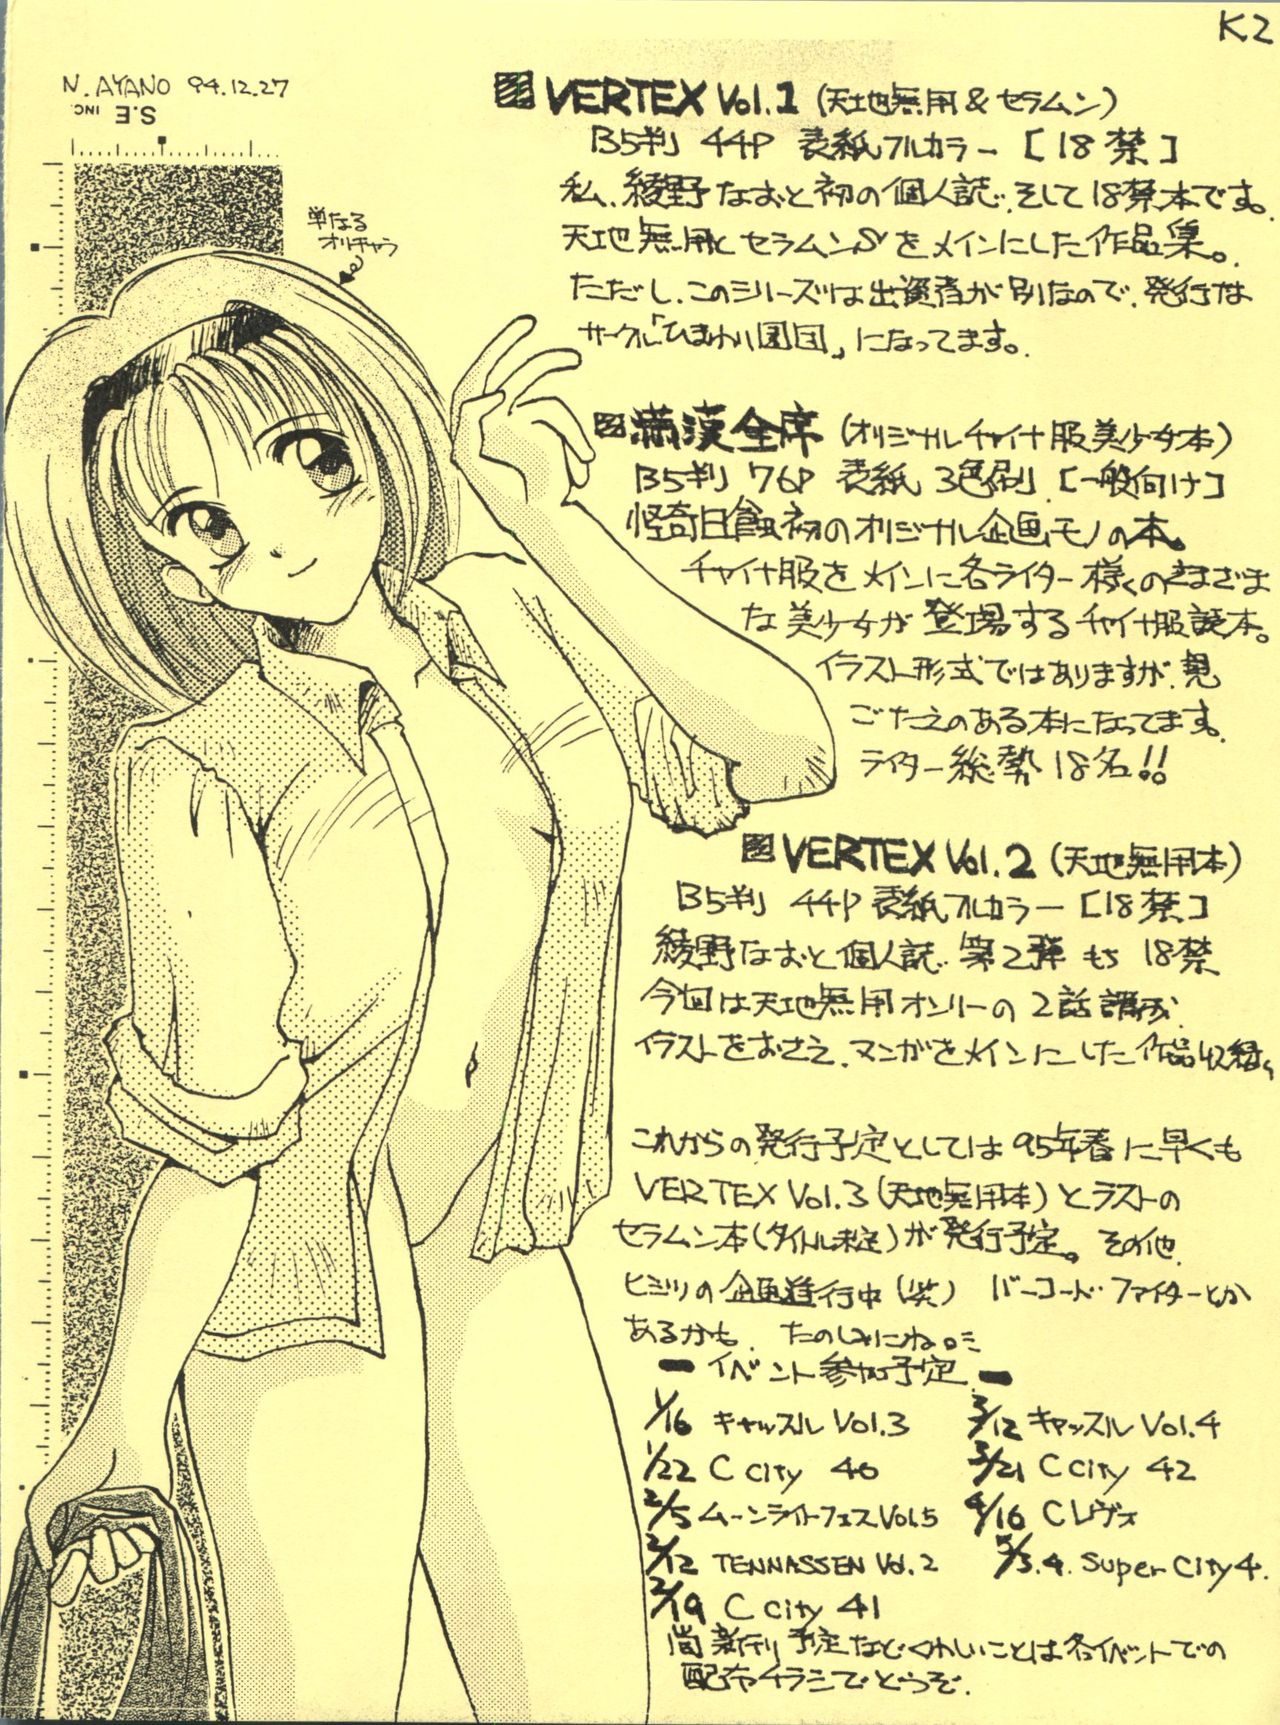 K2
N. AYANO 94.12.27
S.E INC.
単なる
オリキャラ
VERTEX Vol.1 (天地無用 & セラムン)
B5判 44P 表紙フルカラー [18禁]
私、綾野なおと初の個人誌、そして18禁本です。
天地無用とセラムンSをメインにした作品集。
ただし、このシリーズは出資者が別なので、発行は
サークル「ひまわり園団」になってます。
満漢全席 (オリジナルチャイナ服美少女本)
B5判 76P 表紙 3色刷 [一般向け]
怪奇日蝕初のオリジナル企画モノの本。
チャイナ服をメインに各ライター様々のさまざま
な美少女が登場するチャイナ服読本。
イラスト形式ではありますが、見
ごたえのある本になってます。
ライター総勢18名!!
VERTEX Vol.2 (天地無用本)
B5判 44P 表紙フルカラー [18禁]
綾野なおと個人誌 第2弾 もち 18禁
今回は天地無用オンリーの2話構成
イラストをおさえ、マンガをメインにした作品収録。
これからの発行予定としては95年春に早くも
VERTEX Vol.3 (天地無用本) とラストの
セラムン本(タイトル未定)が発行予定。その他
ヒミツの企画進行中(笑) バーコード・ファイターとか
あるかも。たのしみにね。
ーイベント参加予定ー
1/16 キャッスル Vol.3
1/22 C City 40
2/5 ムーンライトフェス Vol.5
2/12 TENNASSEN Vol.2
2/19 C City 41
3/12 キャッスル Vol.4
3/21 C City 42
4/16 Cレヴォ
5/3.4. Super City 4.
尚新刊予定などくわしいことは各イベントでの
配布チラシでどうぞ。